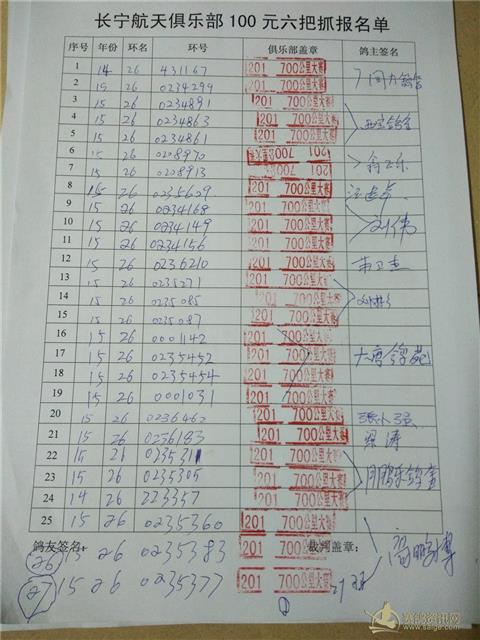 长宁航天俱乐部 100 元六把抓报名单
序号 年份 环名 环号 俱乐部盖章 鸽主签名
1 14 26 431167 201 700公里大赛
2 15 26 0234299 201 700公里大赛
3 15 26 0234891 201 700公里大赛
4 15 26 0234863 201 700公里大赛
5 15 26 0234861 201 700公里大赛
6 15 26 0208970 201 700公里大赛
7 15 26 0208913 201 700公里大赛
8 15 26 0235609 201 700公里大赛
9 15 26 0234168 201 700公里大赛 刘伟
10 15 26 0234149 201 700公里大赛
11 15 26 0234156 201 700公里大赛
12 15 26 0236210 201 700公里大赛
13 15 26 0235271 201 700公里大赛
14 15 26 0235085 201 700公里大赛
15 15 26 0235087 201 700公里大赛
16 15 26 0001142 201 700公里大赛
17 15 26 0235452 201 700公里大赛
18 15 26 0235454 201 700公里大赛
19 15 26 0001031 201 700公里大赛
20 15 26 0236462 201 700公里大赛 张小强
21 15 26 0236183 201 700公里大赛 梁涛
22 15 26 0235311 201 700公里大赛
23 15 26 0235305 201 700公里大赛
24 14 26 223357 201 700公里大赛
25 15 26 0235360 201 700公里大赛
鸽友签名： 裁判盖章：
26 15 26 0235383 201 700公里大赛
27 15 26 0235377 201 700公里大赛
赛鸽资讯网
www.saige.com